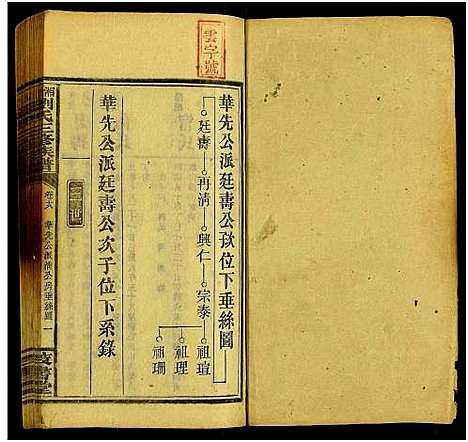 雲字號
華先公派廷壽公次位下垂絲圖
廷壽 再清 興仁 宗泰 祖瑄
祖理
祖珊
華先公派廷壽公次子位下系錄
湘劉氏三修族譜
卷六 華先公派清公房垂絲圖 一